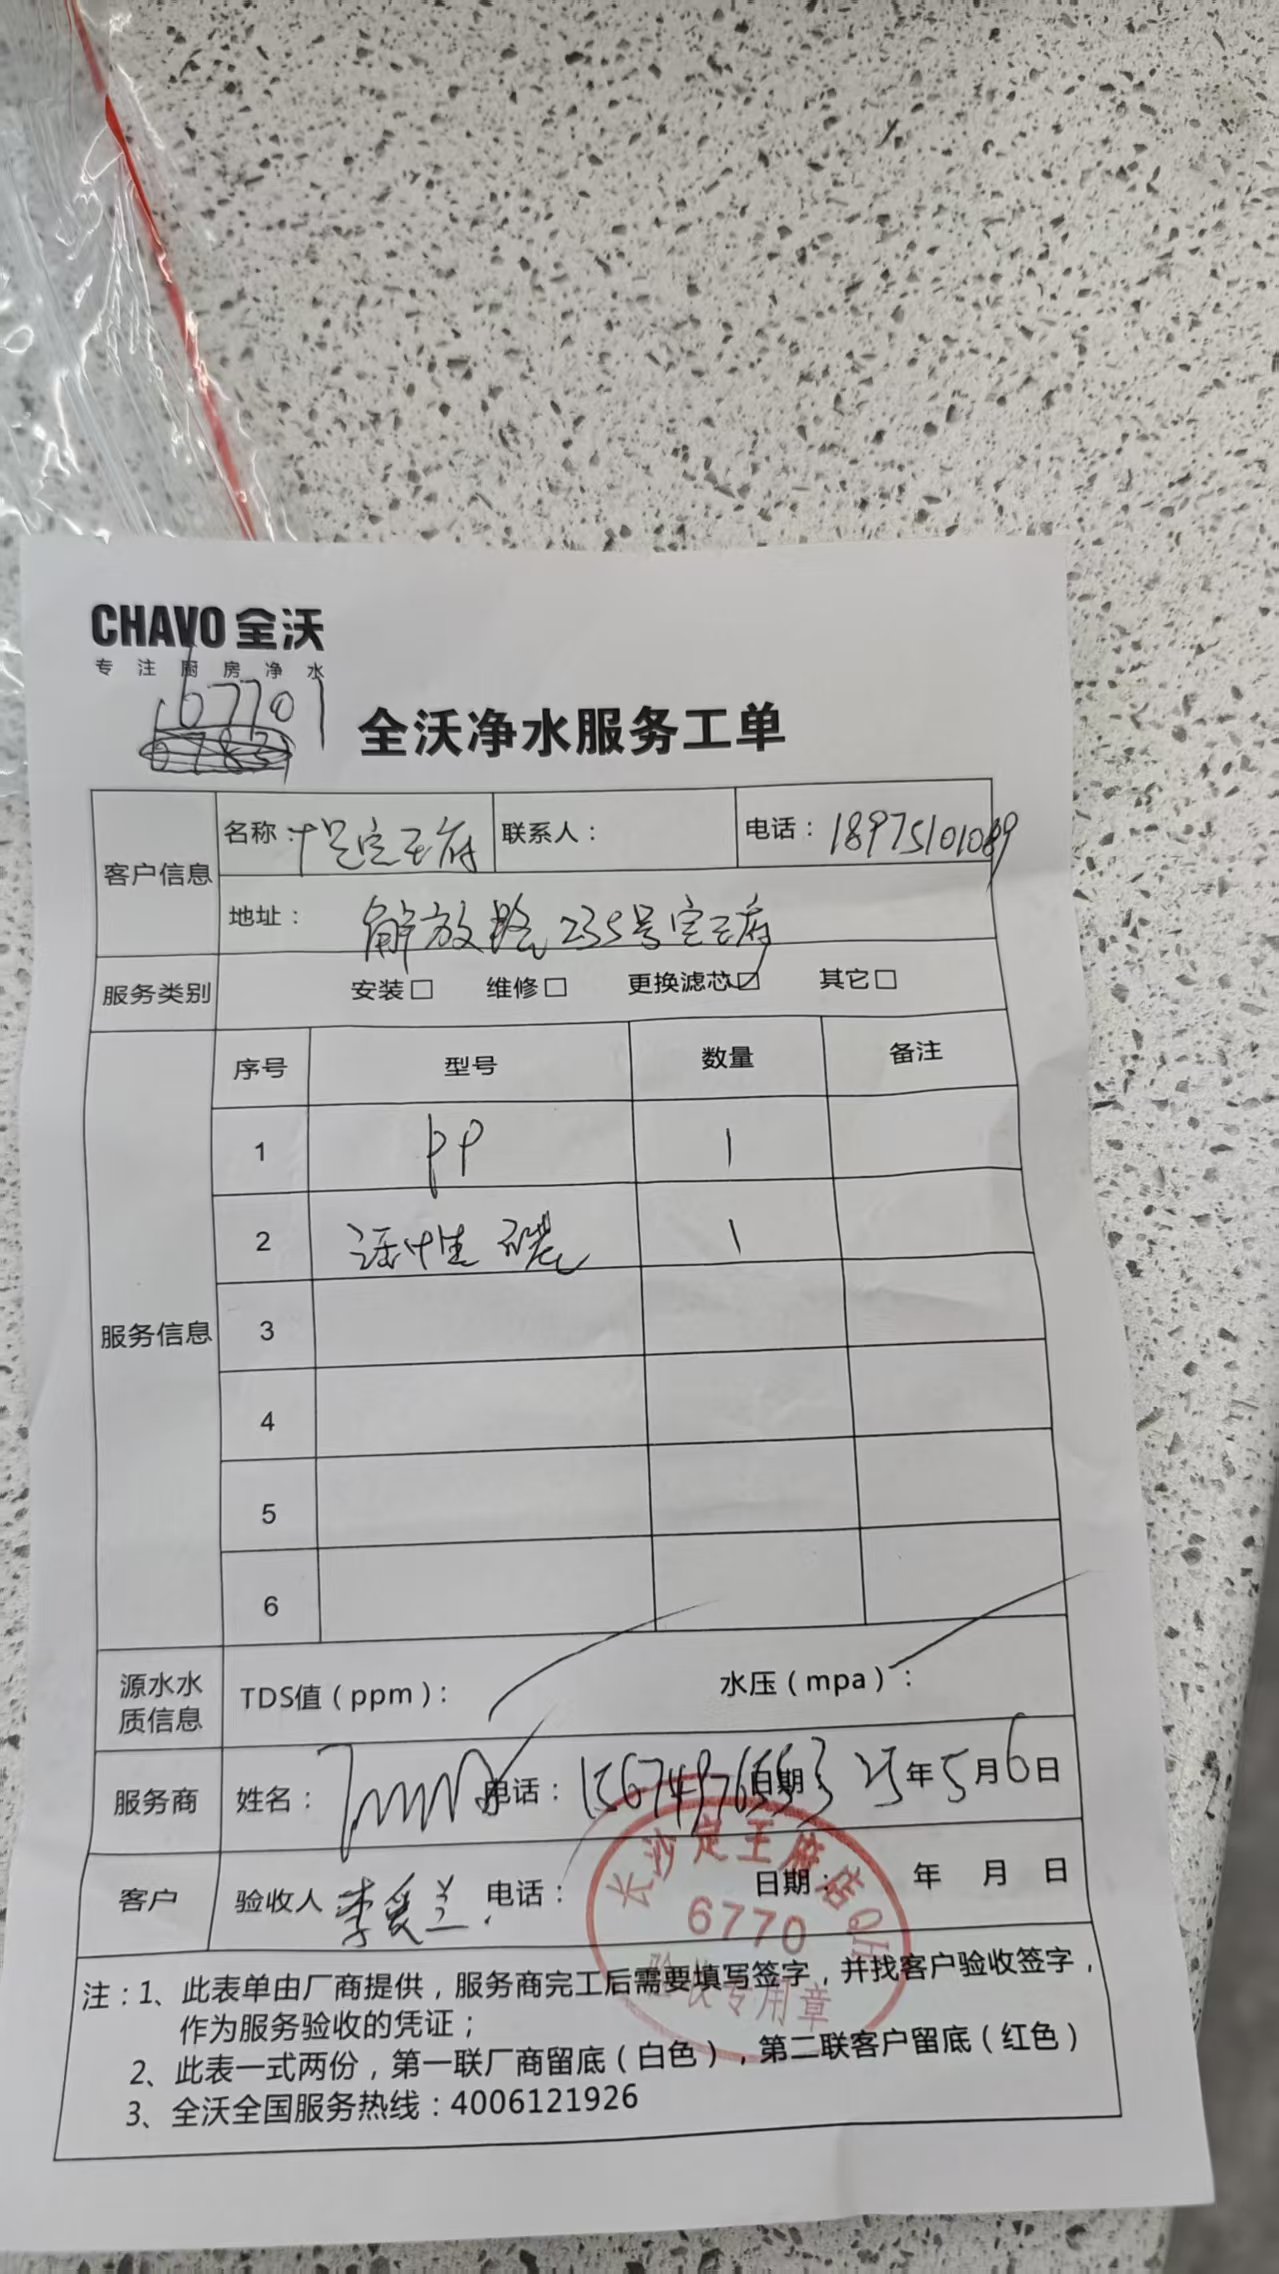 CHAVO 全沃
专注厨房净水
67701
全沃净水服务工单
客户信息 名称： 定王府 联系人： 电话：18975101089
地址： 解放路235号定王府
服务类别 安装□ 维修□ 更换滤芯☑ 其它□
服务信息 序号 型号 数量 备注
1 PP 1
2 活性碳 1
3
4
5
6
源水水质信息 TDS值（ppm）： 水压（mpa）：
服务商 姓名： 电话： 日期： 25年5月6日
客户 验收人 李爱兰 电话： 日期： 年 月 日
长沙定王府店QH
6770
验收专用章
注：1、此表单由厂商提供，服务商完工后需要填写签字，并找客户验收签字，
作为服务验收的凭证；
2、此表一式两份，第一联厂商留底（白色），第二联客户留底（红色）
3、全沃全国服务热线：4006121926